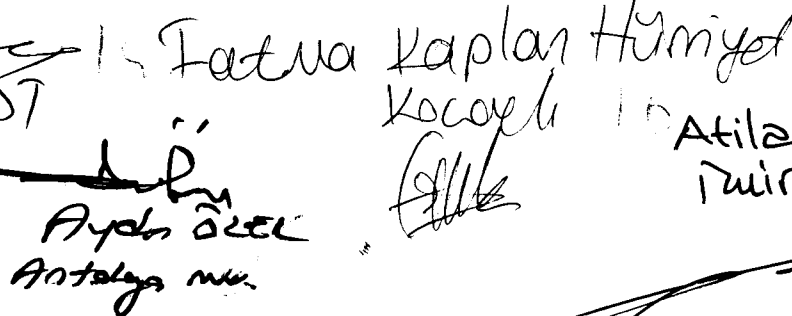 Fatma Kaplan Hürriyet
Kocaeli
Atila
İzmir
Aydın ÖZER
Antalya mv.